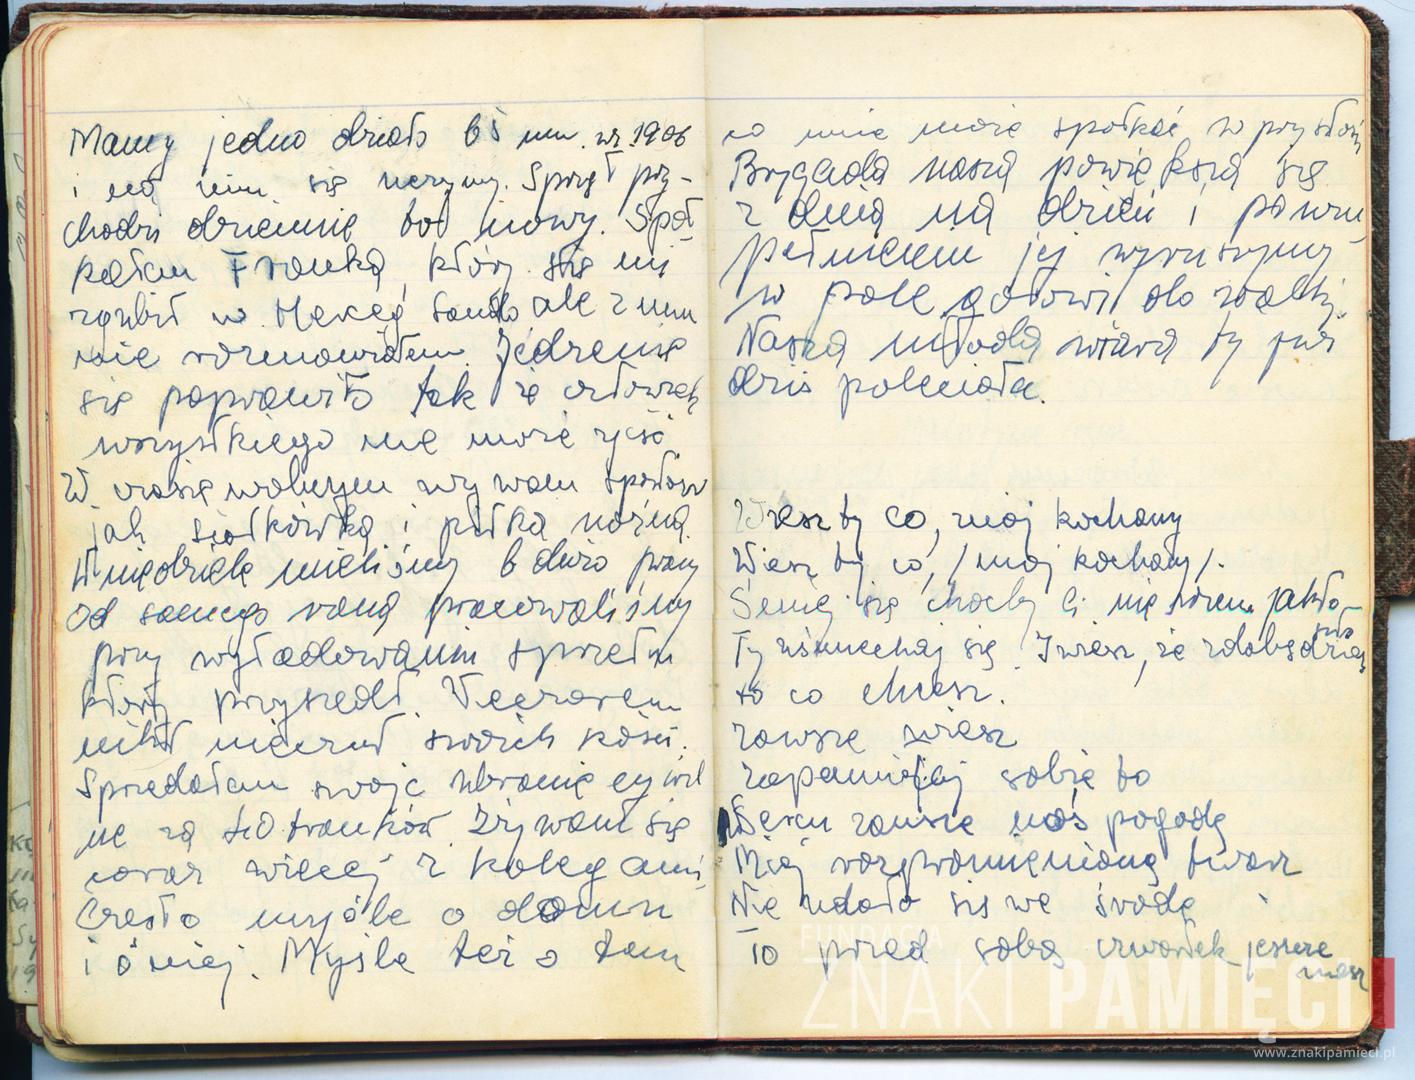 Mamy jedno działo 65 mm. wz 1906
i na nim się uczymy. Sprzęt przy-
chodzi dziennie
kałem Franka, który się mi
zgubił w ale z nim
nie rozmawiałem. Jedzenie
się poprawiło tak że człowiek
wszystkiego nie może zjeść
W czasie wolnym
jak siatkówka i piłka nożna.
W niedzielę mieliśmy b dużo pracy
Od samego rana pracowaliśmy
przy wyładowaniu sprzętu
który przyszedł. Wieczorem
nikt nie czuł swoich kości.
Sprzedałem swoje ubranie cywil
ne za franków. Zżywam się
coraz więcej z kolegami
Często myślę o domu
i o niej. Myślę też o tem
co mnie może spotkać w przyszłoś
Brygada nasza powiększa się
z dnia na dzień i po wzu
pełnieniu jej wyruszymy
w pole gotowi do walki.
Nasza młoda wiara by już
dziś poleciała.
Wiesz ty co, mój kochany
Wiesz ty co, /mój kochany/.
Śmiej się choćby Ci nie wiem jak źle
Ty uśmiechaj się. I wiesz, że zdobędziesz
to co chcesz.
zawsze wiesz
zapamiętaj sobie to
W sercu zawsze noś pogodę
Miej rozpromienioną twarz
Nie udało się we środę
To przed sobą czwartek jeszcze
masz
FUNDACJA
ZNAKI PAMIĘCI
www.znakipamieci.pl